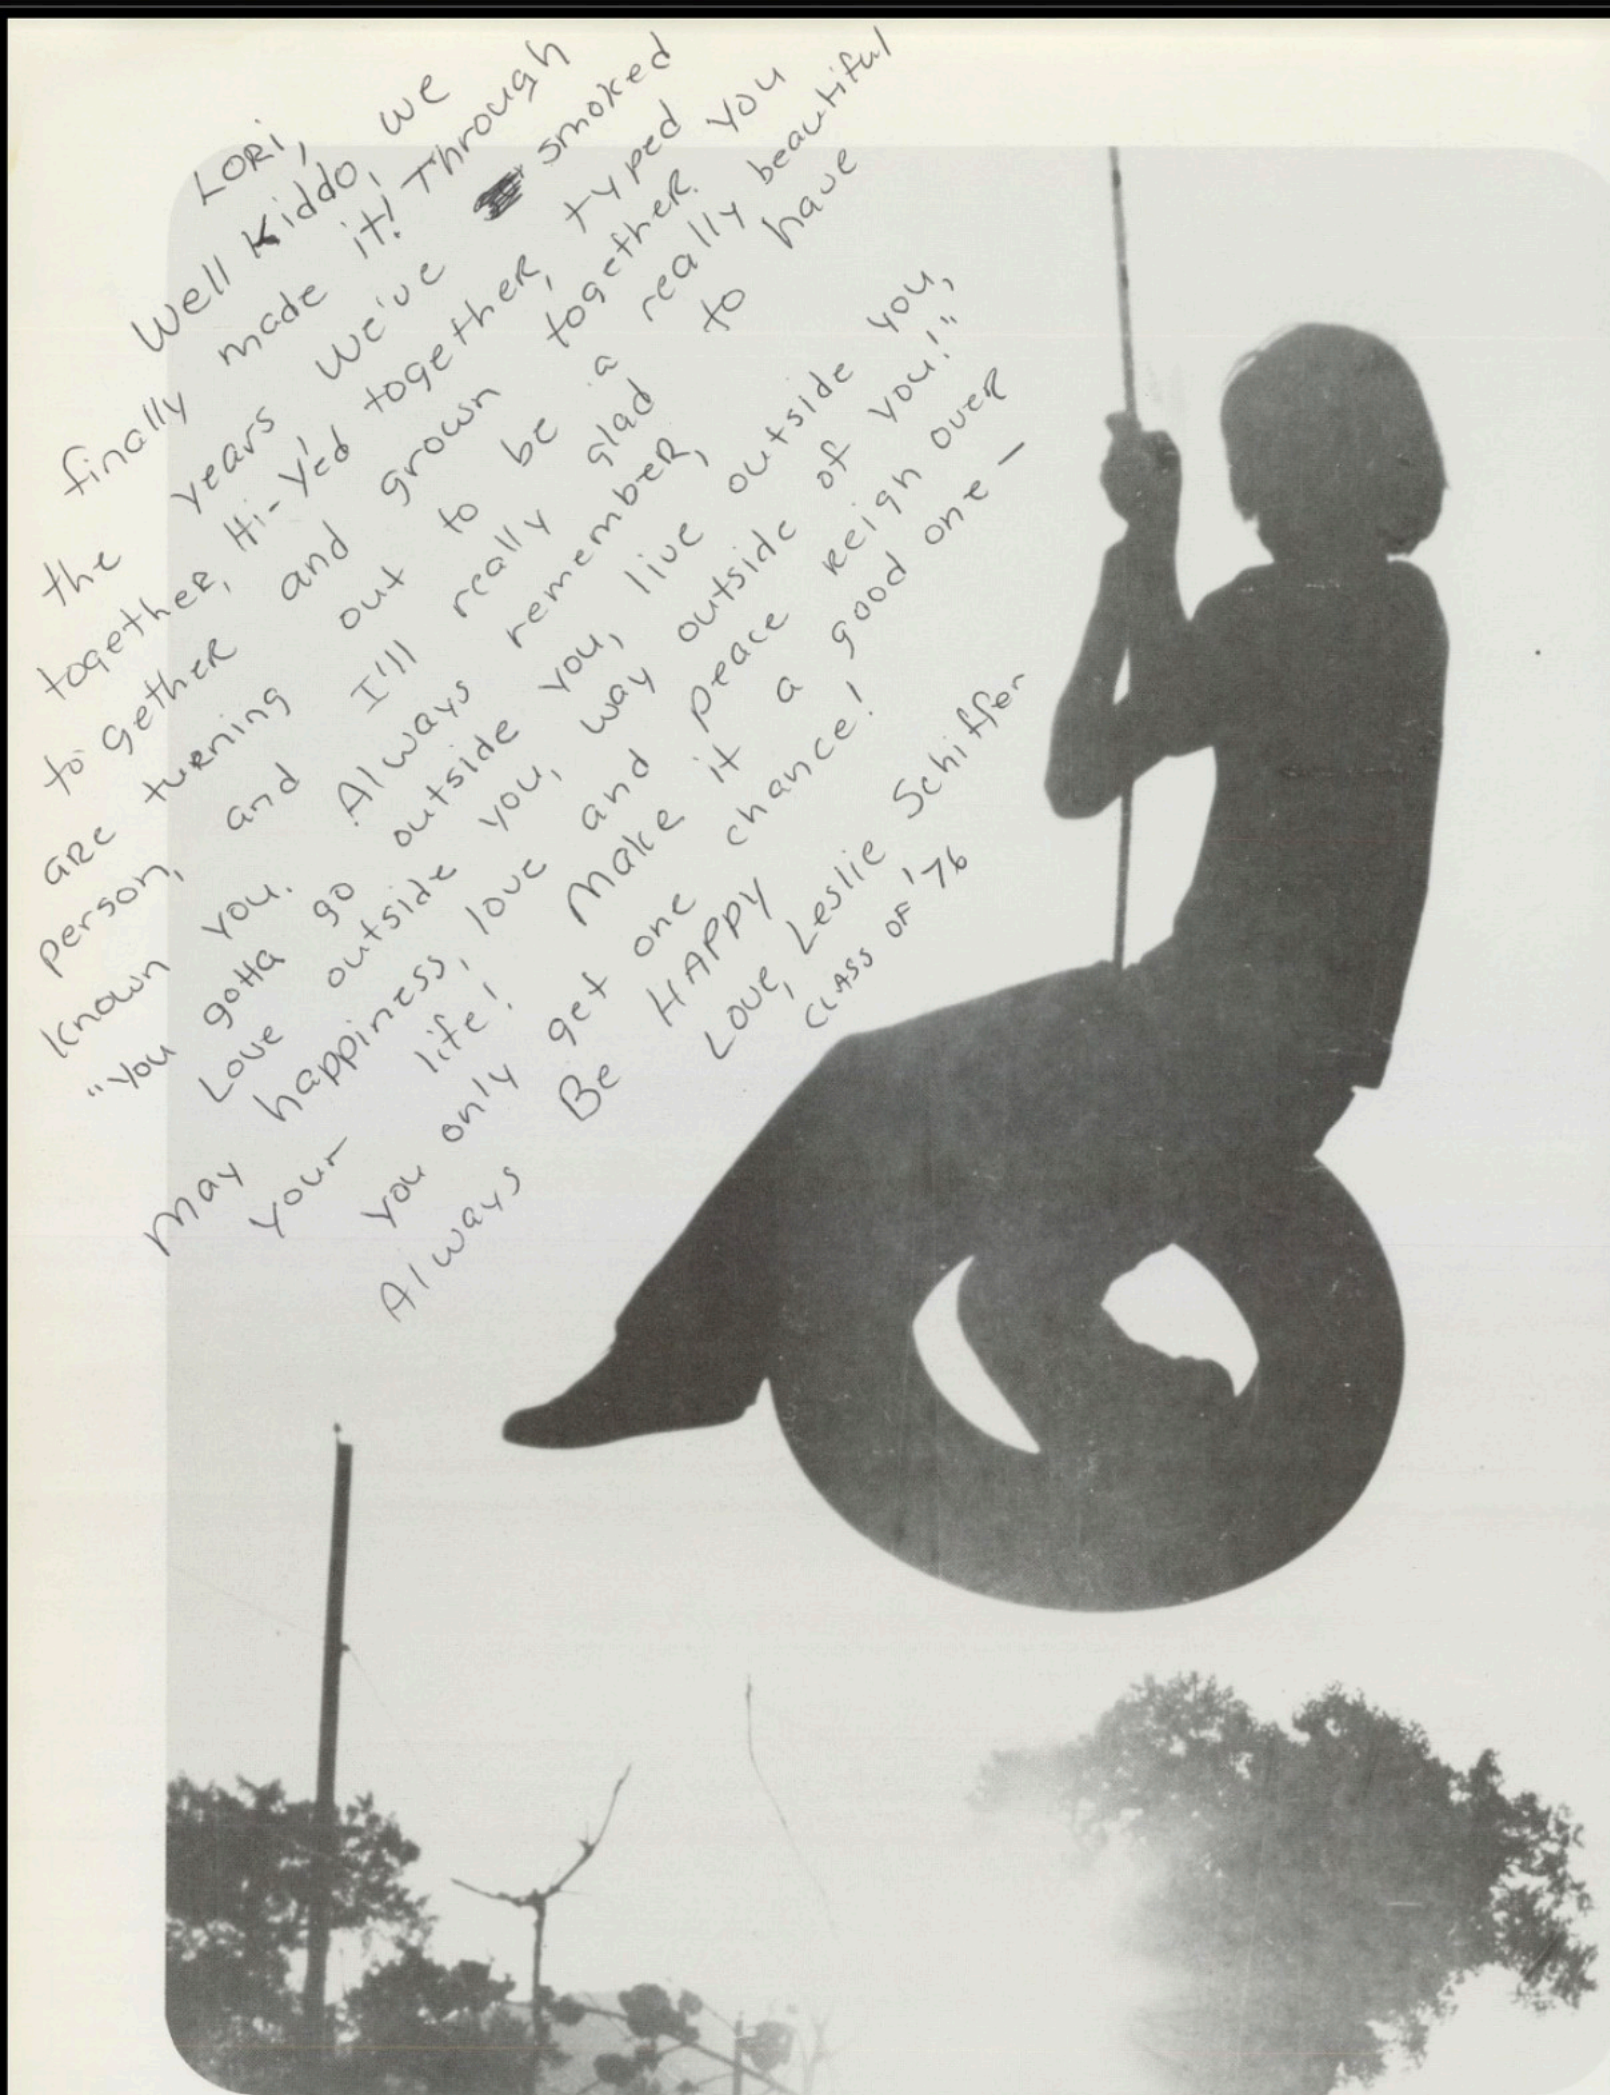 LORi,
Well Kiddo, we
finally made it! Through
the years we've smoked
together, Hi-Y'ed together, typed
to gether and grown together. You
are turning out to be a really beautiful
person, and I'll really glad to have
known you. Always remember,
"You gotta go outside you, live outside you,
Love outside you, way outside of you!"
May happiness, love and peace reign over
your life! Make it a good one —
you only get one chance!
Always Be HAPPY
Love, Leslie Schiffer
CLASS OF '76